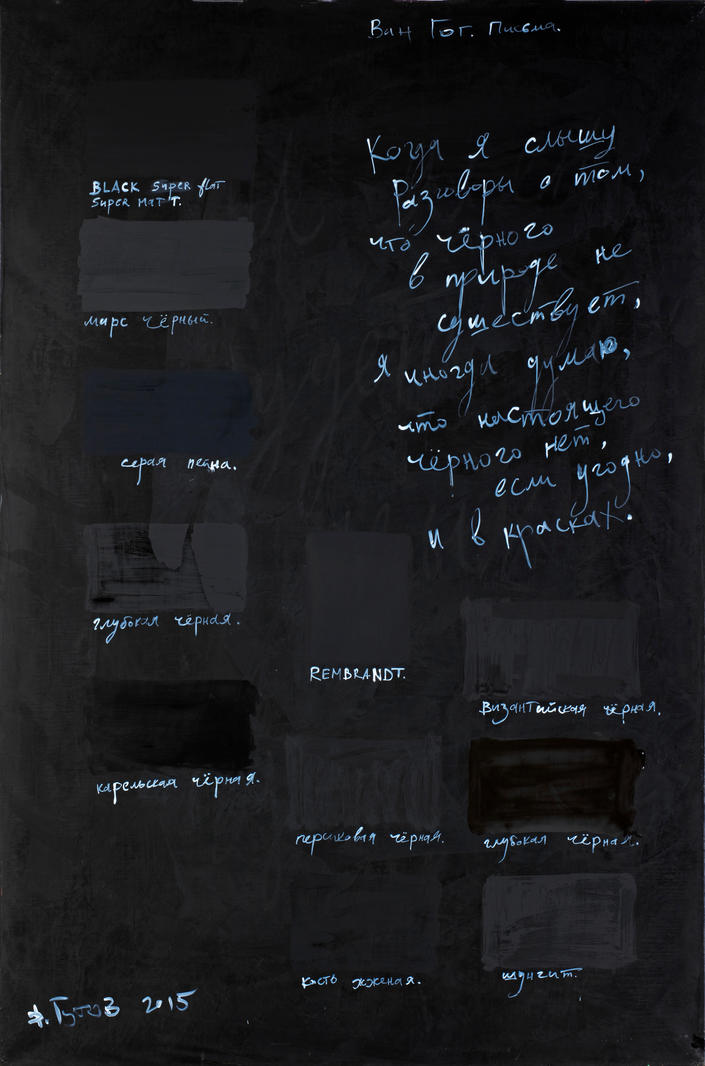 Ван Гог. Письма.
Когда я слышу
Разговоры о том,
что чёрного
в природе не
существует,
я иногда думаю,
что настоящего
чёрного нет,
если угодно,
и в красках.
BLACK super flat
super matt.
марс чёрный.
серая пейна.
глубокая чёрная.
карельская чёрная.
REMBRANDT.
Византийская чёрная.
персиковая чёрная.
глубокая чёрная.
кость жжёная.
шунгит.
Д. Гутов 2015